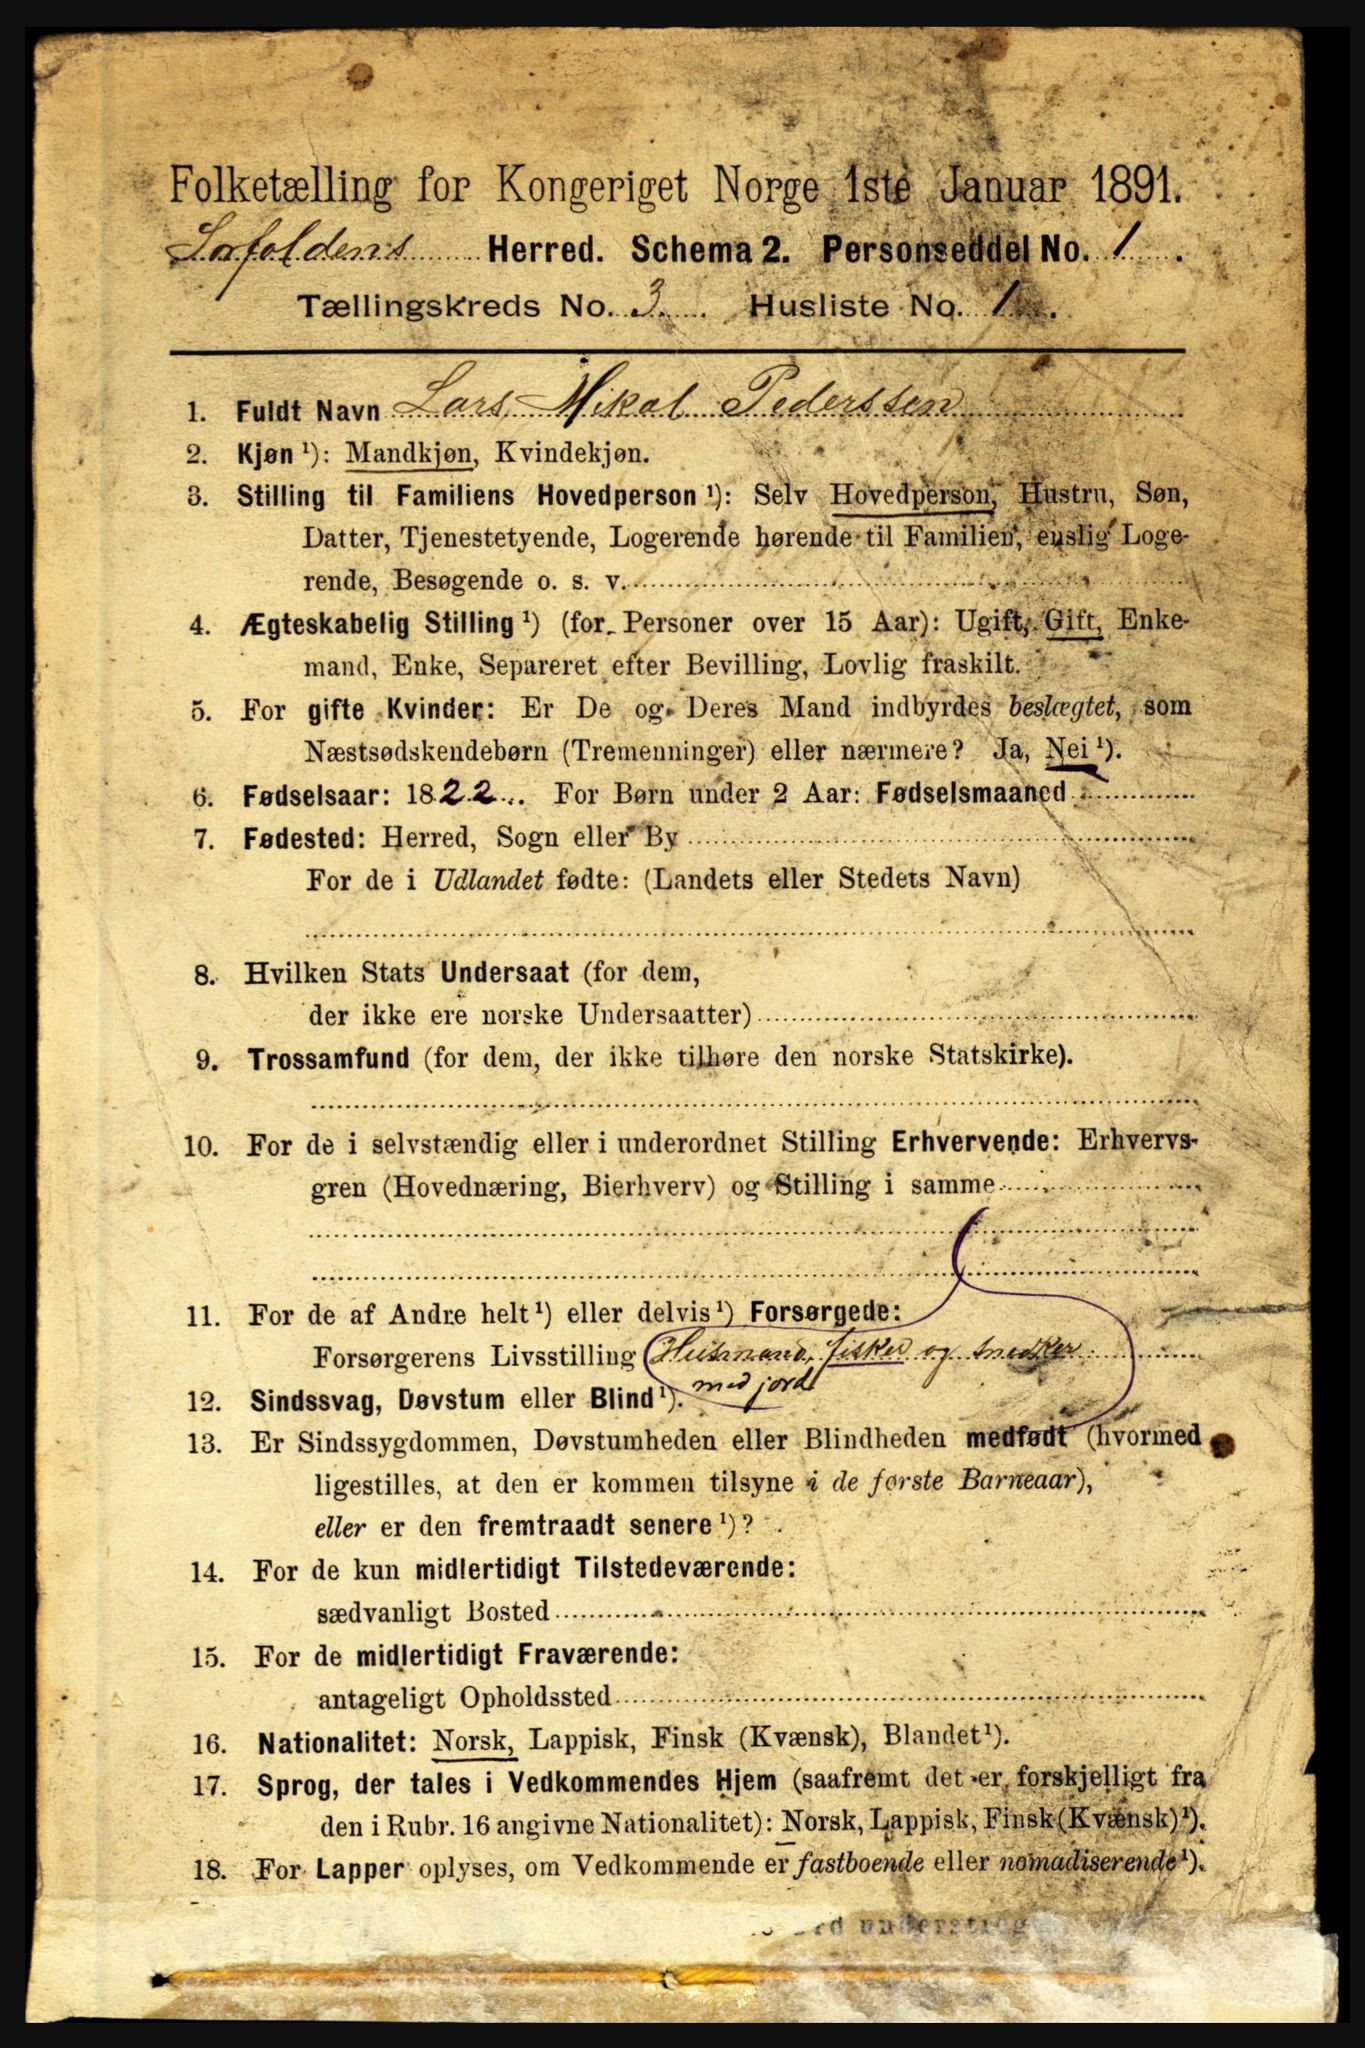 Folketælling for Kongeriget Norge 1ste Januar 1891.
Sorfoldens Herred. Schema 2. Personseddel No. 1.
Tællingskreds No. 3. Husliste No. 1.
1. Fuldt Navn Lars Mikal Pederssen
2. Kjøn¹): Mandkjøn, Kvindekjøn.
3. Stilling til Familiens Hovedperson¹): Selv Hovedperson, Hustru, Søn,
Datter, Tjenestetyende, Logerende hørende til Familien, enslig Loge-
rende, Besøgende o. s. v.
4. Ægteskabelig Stilling¹) (for Personer over 15 Aar): Ugift, Gift, Enke-
mand, Enke, Separeret efter Bevilling, Lovlig fraskilt.
5. For gifte Kvinder: Er De og Deres Mand indbyrdes beslægtet, som
Næstsødskendebørn (Tremenninger) eller nærmere? Ja, Nei¹).
6. Fødselsaar: 1822. For Børn under 2 Aar: Fødselsmaaned
7. Fødested: Herred, Sogn eller By
For de i Udlandet fødte: (Landets eller Stedets Navn)
8. Hvilken Stats Undersaat (for dem,
der ikke ere norske Undersaatter)
9. Trossamfund (for dem, der ikke tilhøre den norske Statskirke).
10. For de i selvstændig eller i underordnet Stilling Erhvervende: Erhvervs-
gren (Hovednæring, Bierhverv) og Stilling i samme
11. For de af Andre helt¹) eller delvis¹) Forsørgede:
Forsørgerens Livsstilling Husmand, fisker og snedker
med jord
12. Sindssvag, Døvstum eller Blind¹).
13. Er Sindssygdommen, Døvstumheden eller Blindheden medfødt (hvormed
ligestilles, at den er kommen tilsyne i de første Barneaar),
eller er den fremtraadt senere¹)?
14. For de kun midlertidigt Tilstedeværende:
sædvanligt Bosted
15. For de midlertidigt Fraværende:
antageligt Opholdssted
16. Nationalitet: Norsk, Lappisk, Finsk (Kvænsk), Blandet¹).
17. Sprog, der tales i Vedkommendes Hjem (saafremt det er forskjelligt fra
den i Rubr. 16 angivne Nationalitet): Norsk, Lappisk, Finsk (Kvænsk)¹).
18. For Lapper oplyses, om Vedkommende er fastboende eller nomadiserende¹).